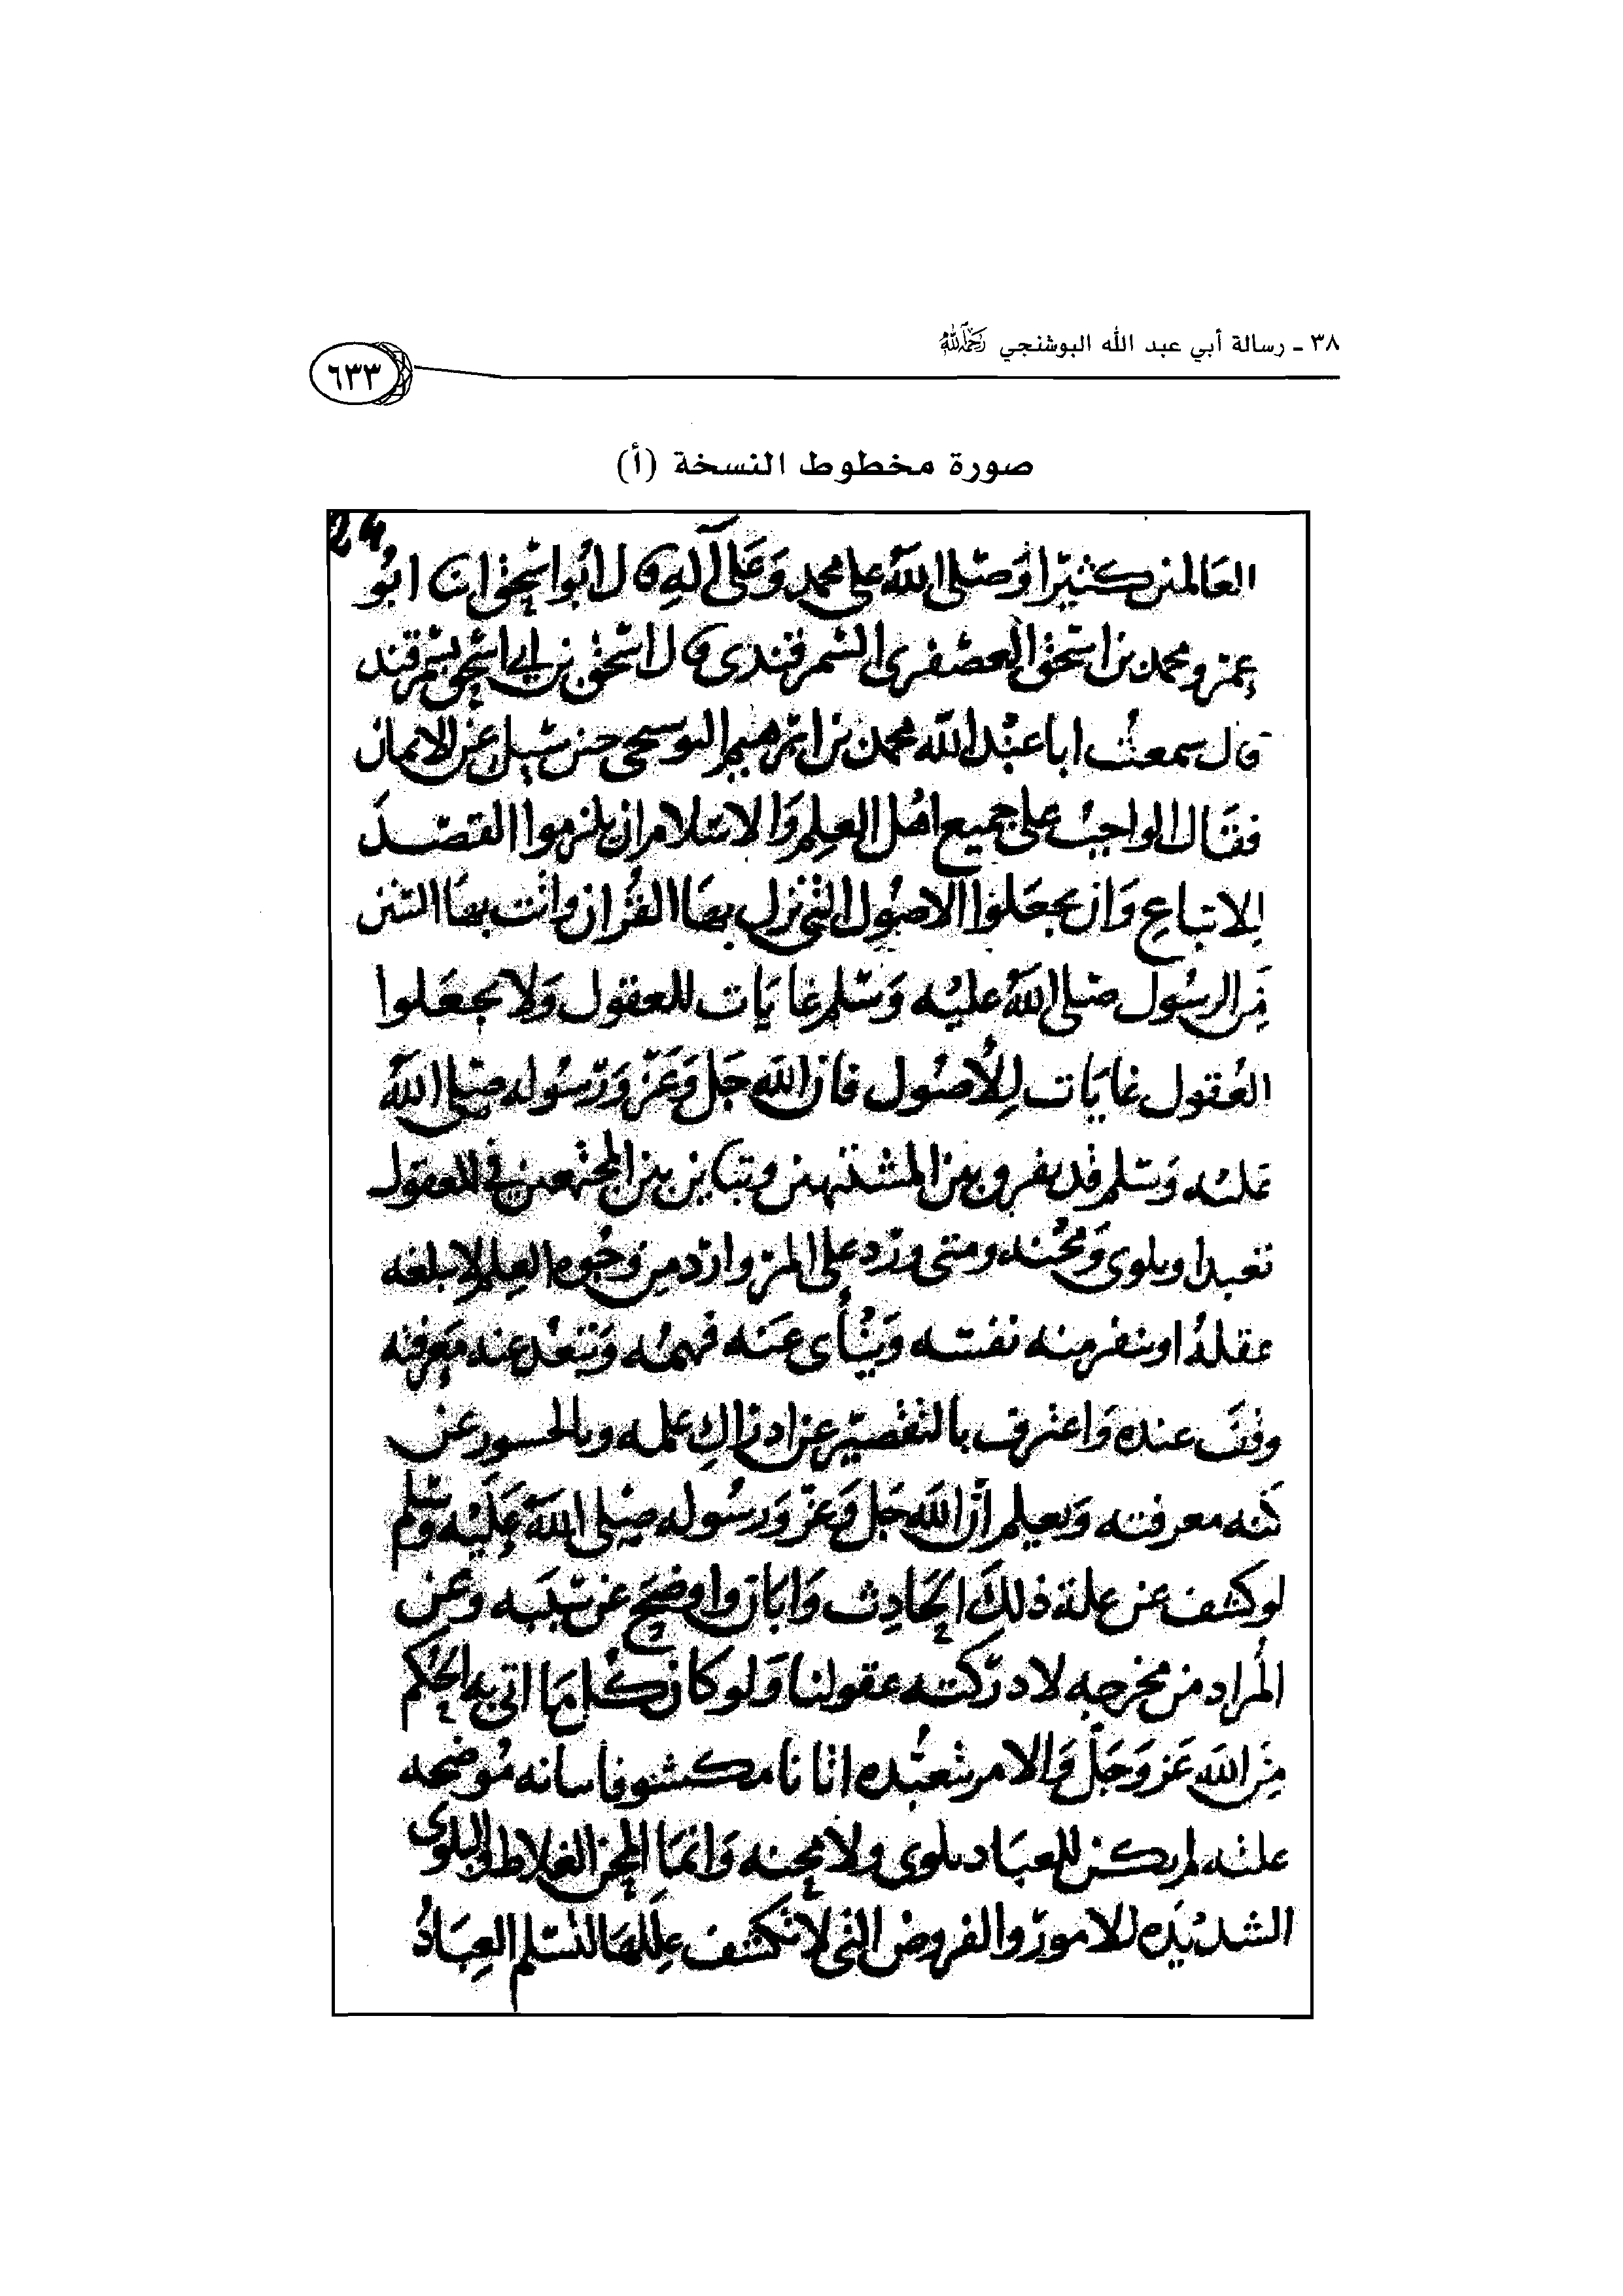 ٣٨ ـ رسالة أبي عبد الله البوشنجي رحمه الله
٦٣٣
صورة مخطوط النسخة (أ)
24
العالمين كثيرا وَصَلى اللهُ على محمد وَعَلى آلهِ قال ابُو اسحٰق انا ابُو
عمرو محمد بن اسحٰق العصفرى السمرقندى قال اسحٰق بن ابى اسحٰق بسمرقند
قال سمعتُ ابا عبْد الله محمد بن ابرهيم البوسحى حين سُيل عن الايمان
فقَال الواجبُ على جميع اهْل العِلم وَالاسلام ان يلزموا القصْد
لِلاتباعِ وَان يجعَلوا الاصُول التى نزل بهَا القُران واتت بهَا السنن
مِن الرسُول صَلى اللهُ عليْه وَسَلم غايَات للعقول وَلا يجعَلوا
العُقول غايَات لِلأصُول فان الله جَل وَعَزّ وَرَسُوله صَلى اللهُ
عليْه وَسَلم قد يفرق بين المشتبهين وتباين بين المجتمعين فى العقول
تعبدا وبلوى وَمحْنه ومتى ورَد على المرْ وارد من وجُوه العِلم لا يبلغه
عقلهُ او تنفر منه نفسه وَينْأى عَنه فهمُه وَتبْعُد عنه مَعرفته
وقفَ عنده وَاعترف بالتقصيْر عن ادراك علمه وبالحسور عن
كنه معرفته وَيعلم أن الله جَل وَعَزّ وَرسُوله صَلى اللهُ عَلَيْه وسَلم
لو كشف عن علة ذلكَ الحَادِث وَابَان واوضحَ عن سَبَبه وعَن
المُراد من مخرجه لادرَكته عقولنا وَلو كان كل مَا اتى به الحكم
مِن الله عَز وَجَلّ وَالامر بتعبّده اتانا مكشوفا بيانه مُوضحه
علته لم يكن للعبَاد بلوى ولا محنه وَانمَا المحن الغلاظ والبلوى
الشديْده للامورْ والفروض التى لا تكشف عِللهَا لتسلم العِبَادُ